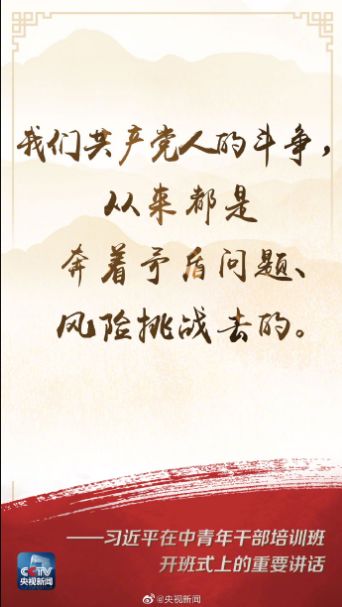 我们共产党人的斗争，
从来都是
奔着矛盾问题、
风险挑战去的。
——习近平在中青年干部培训班
开班式上的重要讲话
CCTV
央视新闻
@央视新闻